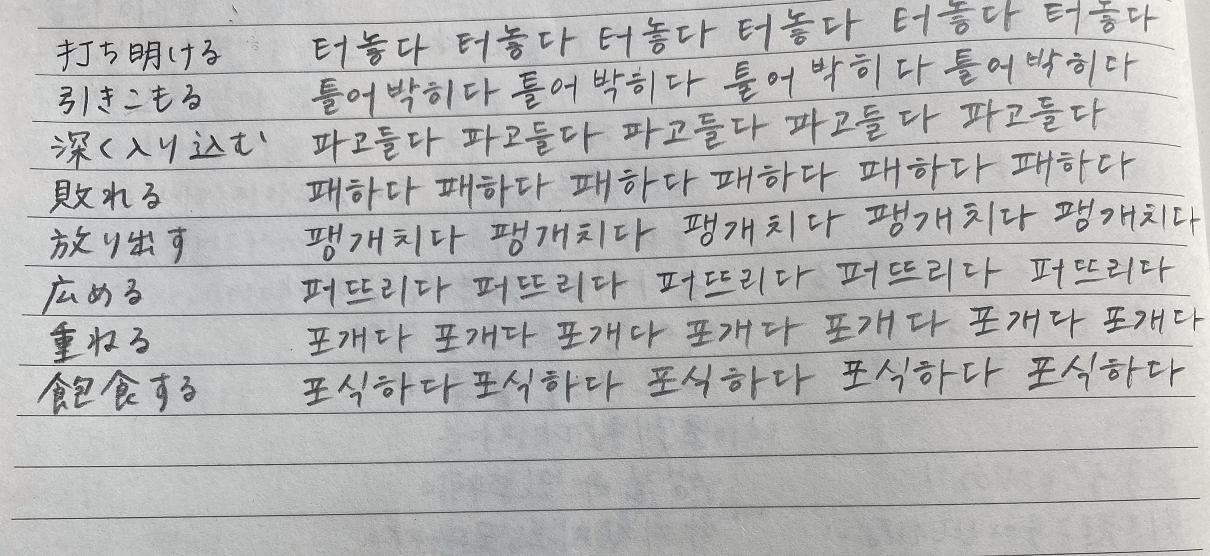 打ち明ける 터놓다 터놓다 터놓다 터놓다 터놓다 터놓다
引きこもる 틀어박히다 틀어박히다 틀어박히다 틀어박히다
深く入り込む 파고들다 파고들다 파고들다 파고들다 파고들다
敗れる 패하다 패하다 패하다 패하다 패하다 패하다
放り出す 팽개치다 팽개치다 팽개치다 팽개치다 팽개치다
広める 퍼뜨리다 퍼뜨리다 퍼뜨리다 퍼뜨리다 퍼뜨리다
重ねる 포개다 포개다 포개다 포개다 포개다 포개다 포개다
飽食する 포식하다 포식하다 포식하다 포식하다 포식하다